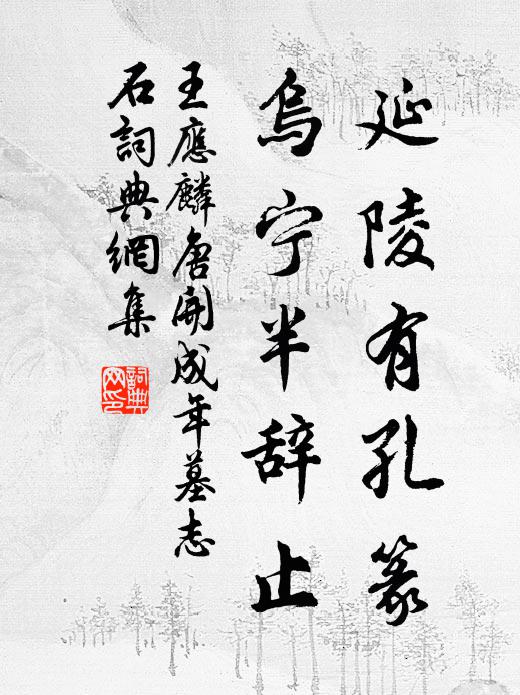 延陵有孔篆
烏宁半辞止
王應麟唐開成年墓志
石詞典網集
詞典网印